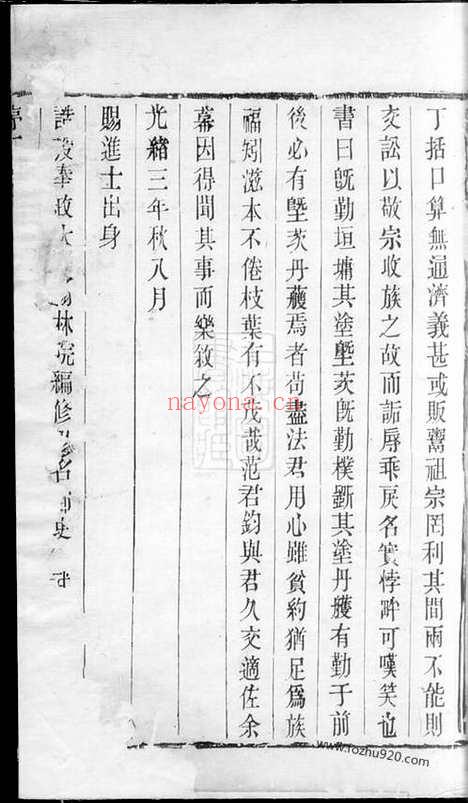 丁括口算無逋濟義甚或販鬻祖宗罔利其間兩不能則
交訟以敬宗收族之故而詬辱乖戾名實悖畔可嘆笑也
書曰旣勤垣墉其塗墍茨旣勤樸斲其塗丹雘有勤于前
後必有墍茨丹雘焉者苟盡法君用心雖貧約猶足為族
福矧滋本不倦枝葉有不茂哉范君鈞與君久交適佐余
幕因得聞其事而樂敘之
光緒三年秋八月
賜進士出身
誥授奉政大 林院編修 史
nayona.cn
www.fozhu920.com